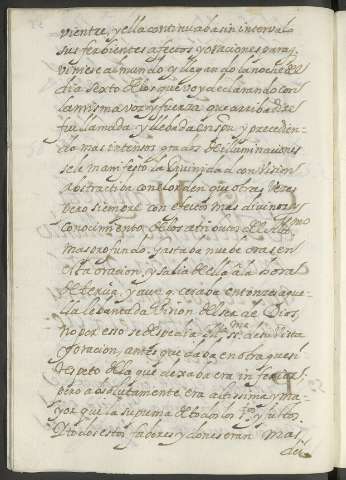 vientre, y ella continuaba sin intervalo
sus fervientes afectos y oraciones para q
viniese al mundo y llegando la noche del
dia sexto de los que voy declarando con
la misma voz y fuerza que arriba dixe
fue llamada y llebada en spu y precedien-
do mas intensos grados de illuminaciones
se le manifesto la Divinidad con vision
abstractiva con el orden que otras veces
pero siempre con efectos mas divinos y
conocimiento de los atributos del altmo
mas profundo. gastaba nuebe oras en
esta oracion, y salia de ella a la hora
de tercia. y aunq cesaba entonzes aque-
lla lebantada vision del ser de Dios,
no por eso se despedia Ma SSma de su vista
y oracion, antes quedaba en otra que si
respeto de la que dexaba era inferior;
pero absolutamente era altissima y ma-
yor que la suprema de todos los stos y justos.
Y todos estos fabores y dones eran mas
dei